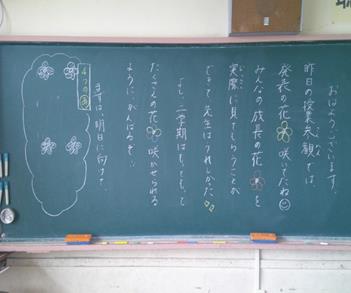 おはようございます。
昨日の授業参観では、
発表の花 咲いてたね
みんなの成長の花 を
実際に見てもらうことが
できて先生はうれしかった
よし、二学期はもっともって
たくさんの花 咲かせられる
ように、がんばるぞ!!
まずは、明日に向けて、
4つの